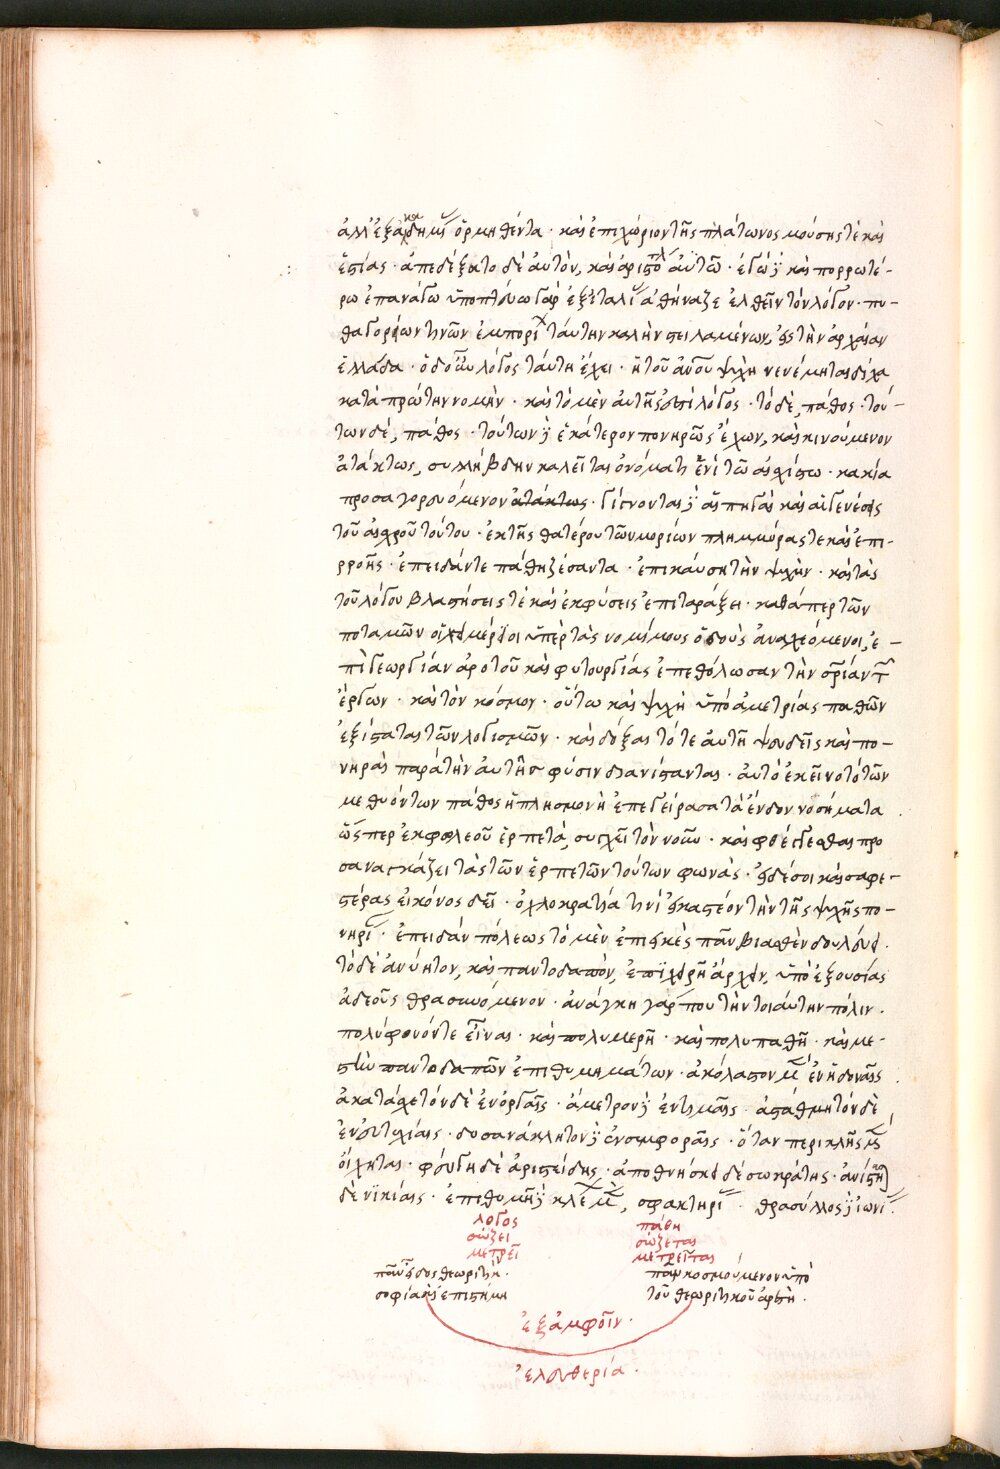 ἀλλ' ἐξ ἀκαδημίας ὁρμηθέντα · καὶ ἐπιχώριον τῆς πλάτωνος μούσης τὲ καὶ
ἑστίας · ἀπεδέξατο δὲ αὐτὸν, καὶ ἀριστοτέλης αὐτῶ · ἐγὼ δὲ καὶ πορρωτέ-
ρω ἐπανάγω ὑποπτεύω γὰρ ἐξ ἰταλίας ἀθήναζε ἐλθεῖν τὸν λόγον · πυ-
θαγορείων τινῶν ἐμπορίαν ταύτην καλὴν στειλαμένων, εἰς τὴν ἀρχαίαν
ἑλλάδα · ὁ δ' οὖν λόγος ταύτη ἔχει · ἡ τοῦ ἀνθρώπου ψυχὴ νενέμηται δίχα
κατὰ πρώτην νομὴν · καὶ τὸ μὲν αὐτῆς ἐστὶ λόγος · τὸ δὲ, πάθος · τού-
των δὲ, πάθος · τούτων δὲ ἑκάτερον πονηρῶς ἔχων, καὶ κινούμενον
ἀτάκτως, συλλήβδην καλεῖται ὀνόματι ἑνὶ τῶ αἰσχίστω · κακία
προσαγορευόμενον ἀτάκτως · γίγνονται δὲ αἱ πηγαὶ καὶ αἱ γενέσεις
τοῦ αἰσχροῦ τούτου · ἐκ τῆς θατέρου τῶν μορίων πλημμύρας τε καὶ ἐπι-
ρροῆς · ἐπειδάν τε πάθη ζέσαντα · ἐπικλύση τὴν ψυχὴν · καὶ τὰς
τοῦ λόγου βλαστήσεις τὲ καὶ ἐκφύσεις ἐπιταράξει · καθάπερ τῶν
ποταμῶν οἱ χειμέριοι ὑπὲρ τὰς νομίμους ὁδοὺς ἀναχεόμενοι, ἐ-
πὶ γεωργίαν ἀρότου καὶ φυτουργίας ἐπεθόλωσαν τὴν σωτηρίαν τῶν
ἔργων · καὶ τὸν κόσμον · οὕτω καὶ ψυχὴ ὑπὸ ἀμετρίας παθῶν
ἐξίσταται τῶν λογισμῶν · καὶ δόξαι τότε αὐτῆ ψευδεῖς καὶ πο-
νηραὶ παρὰ τὴν αὐτῆς φύσιν διανίστανται · αὐτὸ ἐκεῖνο τὸ τῶν
μεθυόντων πάθος ἡ πλησμονὴ ἐπεγείρασα τὰ ἔνδον νοσήματα
ὥσπερ ἐκ φωλεοῦ ἑρπετὰ, συγχεῖ τὸν νοῦν · καὶ φθέγγεσθαι προ
σαναγκάζει τὰς τῶν ἑρπετῶν τούτων φωνάς · εἰ δέ σοι καὶ σαφε-
στέρας εἰκόνος δεῖ · ὀχλοκρατία τινὶ εἰκαστέον τὴν τῆς ψυχῆς πο-
νηρίαν · ἐπειδὰν πόλεως τὸ μὲν ἐπιεικὲς πᾶν βιασθὲν δουλεύει ·
τὸ δὲ ἀνόητον, καὶ παντοδαπὸν, ἐπιχειρῆ ἄρχειν, ὑπὸ ἐξουσίας
ἀδεοῦς θρασυνόμενον · ἀνάγκη γάρ που τὴν τοιαύτην πόλιν ·
πολύφωνόν τε εἶναι · καὶ πολυμερῆ · καὶ πολυπαθῆ · καὶ με-
στὴν παντοδαπῶν ἐπιθυμημάτων · ἀκόλαστον μὲν ἐν ἡδοναῖς
ἀκατάσχετον δὲ ἐν ὀργαῖς · ἄμετρον δὲ ἐν τιμαῖς · ἀστάθμητον δὲ
ἐν εὐτυχίαις · δυσανάκλητον δὲ ἐν συμφοραῖς · ὅταν περικλῆς μὲν
οἴχηται · φεύγη δὲ ἀριστείδης · ἀποθνήσκει δὲ σωκράτης · ἀνίσταται
δὲ νικίας · ἐπιθυμῆ δὲ κλέων μὲν, σφακτηρίας · θράσυλλος δὲ ἰωνίας ·
λόγος
σώζει
μετρεῖ
πάθη
σώζεται
μετρεῖται
πᾶν εἶδος θεωριτικῆ ·
σοφία καὶ ἐπιστήμη
πᾶν κοσμούμενον ὑπὸ
τοῦ θεωριτικοῦ ἀρετὴ ·
ἐξ ἀμφοῖν ·
ἐλευθερία ·